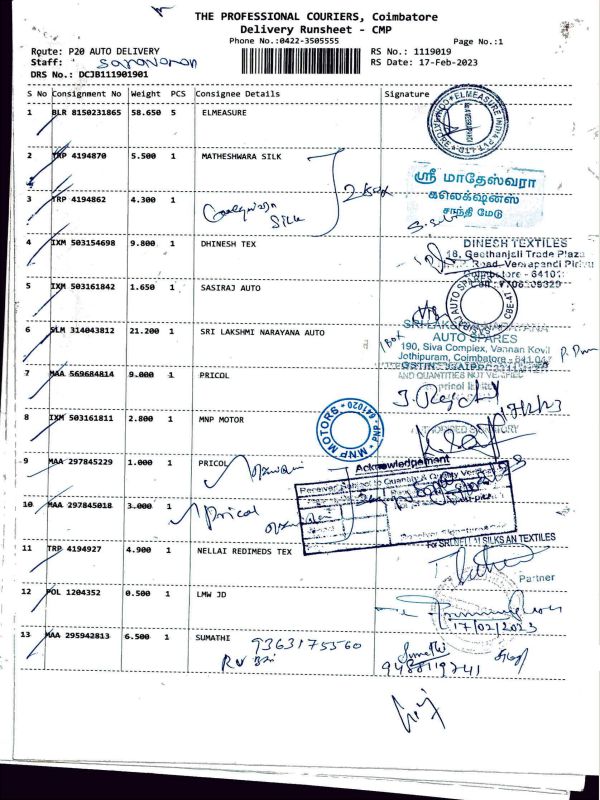 THE PROFESSIONAL COURIERS, Coimbatore
Delivery Runsheet - CMP
Phone No.:0422-3505555
Page No.:1
Route: P20 AUTO DELIVERY
RS No.: 1119019
Staff: Saravanan
RS Date: 17-Feb-2023
DRS No.: DCJB111901901
S No Consignment No Weight PCS Consignee Details Signature
1 BLR 8150231865 58.650 5 ELMEASURE
2 TRP 4194870 5.500 1 MATHESHWARA SILK
ஸ்ரீ மாதேஸ்வரா
கலெக்ஷன்ஸ்
சாந்தி மேடு
3 TRP 4194862 4.300 1
Silk
2 Box
4 IXM 503154698 9.800 1 DHINESH TEX
DINESH TEXTILES
18, Geethanjali Trade Plaza
Road, Veerapandi Pirivu
Coimbatore - 64101
5 IXM 503161842 1.650 1 SASIRAJ AUTO
6 SLM 314043812 21.200 1 SRI LAKSHMI NARAYANA AUTO
1 Box
SRI LAKSHMI NARAYANA
AUTO SPARES
190, Siva Complex, Vannan Kovil
Jothipuram, Coimbatore - 641 047
7 MAA 569684814 9.000 1 PRICOL
AND QUANTITIES NOT VERIFIED
pricol limited
8 IXM 503161811 2.800 1 MNP MOTOR
MNP MOTORS
641020
AUTHORISED SIGNATORY
9 MAA 297845229 1.000 1 PRICOL
Acknowledgement
Received Subject to Quantity & Quality Verification
10 MAA 297845018 3.000 1
Pricol
11 TRP 4194927 4.900 1 NELLAI REDIMEDS TEX
For SRI NELLAI SILKS AN TEXTILES
Partner
12 POL 1204352 0.500 1 LMW JD
17/02/2023
13 MAA 295942813 6.500 1 SUMATHI
9363175560
Sumathi
9488119241